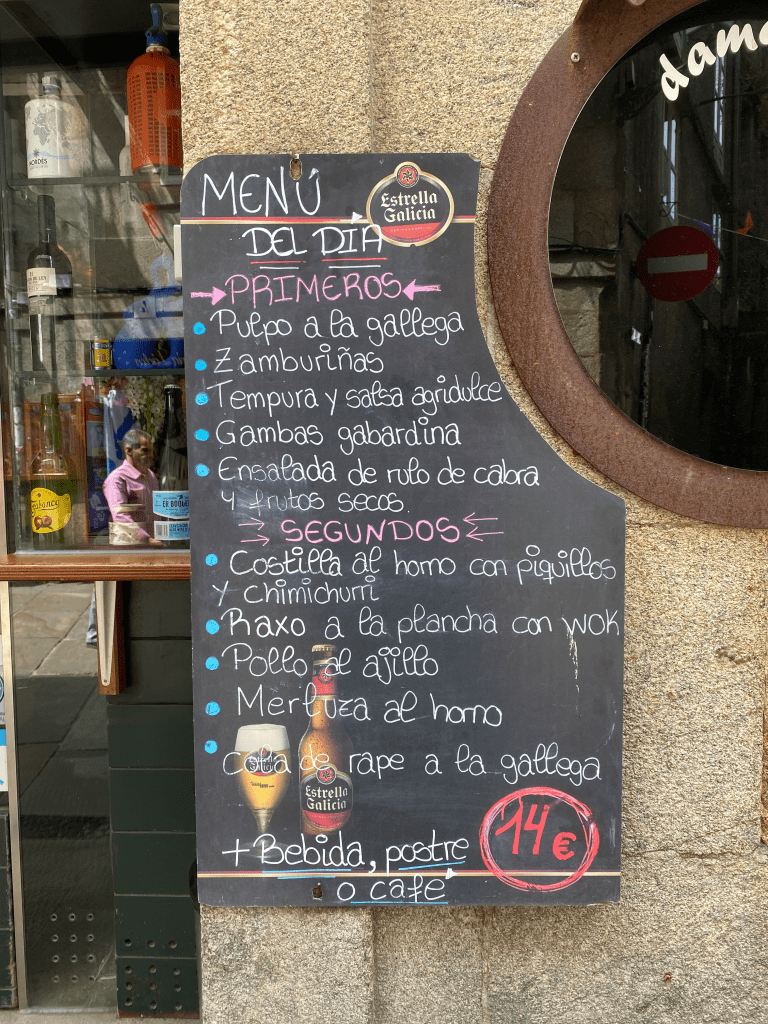 MENÚ
Estrella
Galicia
DEL DIA
PRIMEROS
Pulpo a la gallega
Zamburiñas
Tempura y salsa agridulce
Gambas gabardina
Ensalada de rulo de cabra
y frutos secos.
SEGUNDOS
Costilla al horno con piquillos
y chimichurri
Raxo a la plancha con wok
Pollo al ajillo
Merluza al horno
cola de rape a la gallega
Estrella
Galicia
Estrella
Galicia
14 €
+ Bebida, postre
o café
dama
NORDÉS